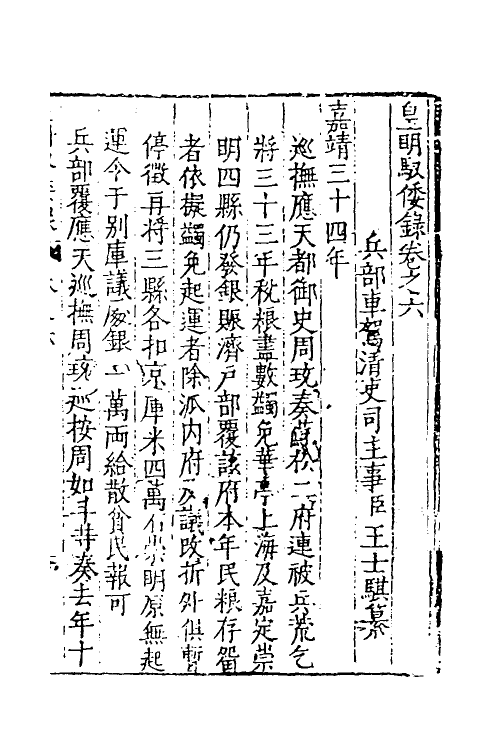 皇明馭倭錄卷之六
兵部車駕清吏司主事臣王士騏纂
嘉靖三十四年
巡撫應天都御史周珫奏蘇松二府連被兵荒乞
將三十三年稅粮盡數蠲免華亭上海及嘉定崇
明四縣仍發銀賑濟戶部覆該府本年民粮存留
者依擬蠲免起運者除派內府及議改折外俱暫
停徵再將三縣各扣京庫米四萬石崇明原無起
運令于別庫議處銀一萬両給散貧民報可
兵部覆應天巡撫周珫巡按周如斗等奏去年十